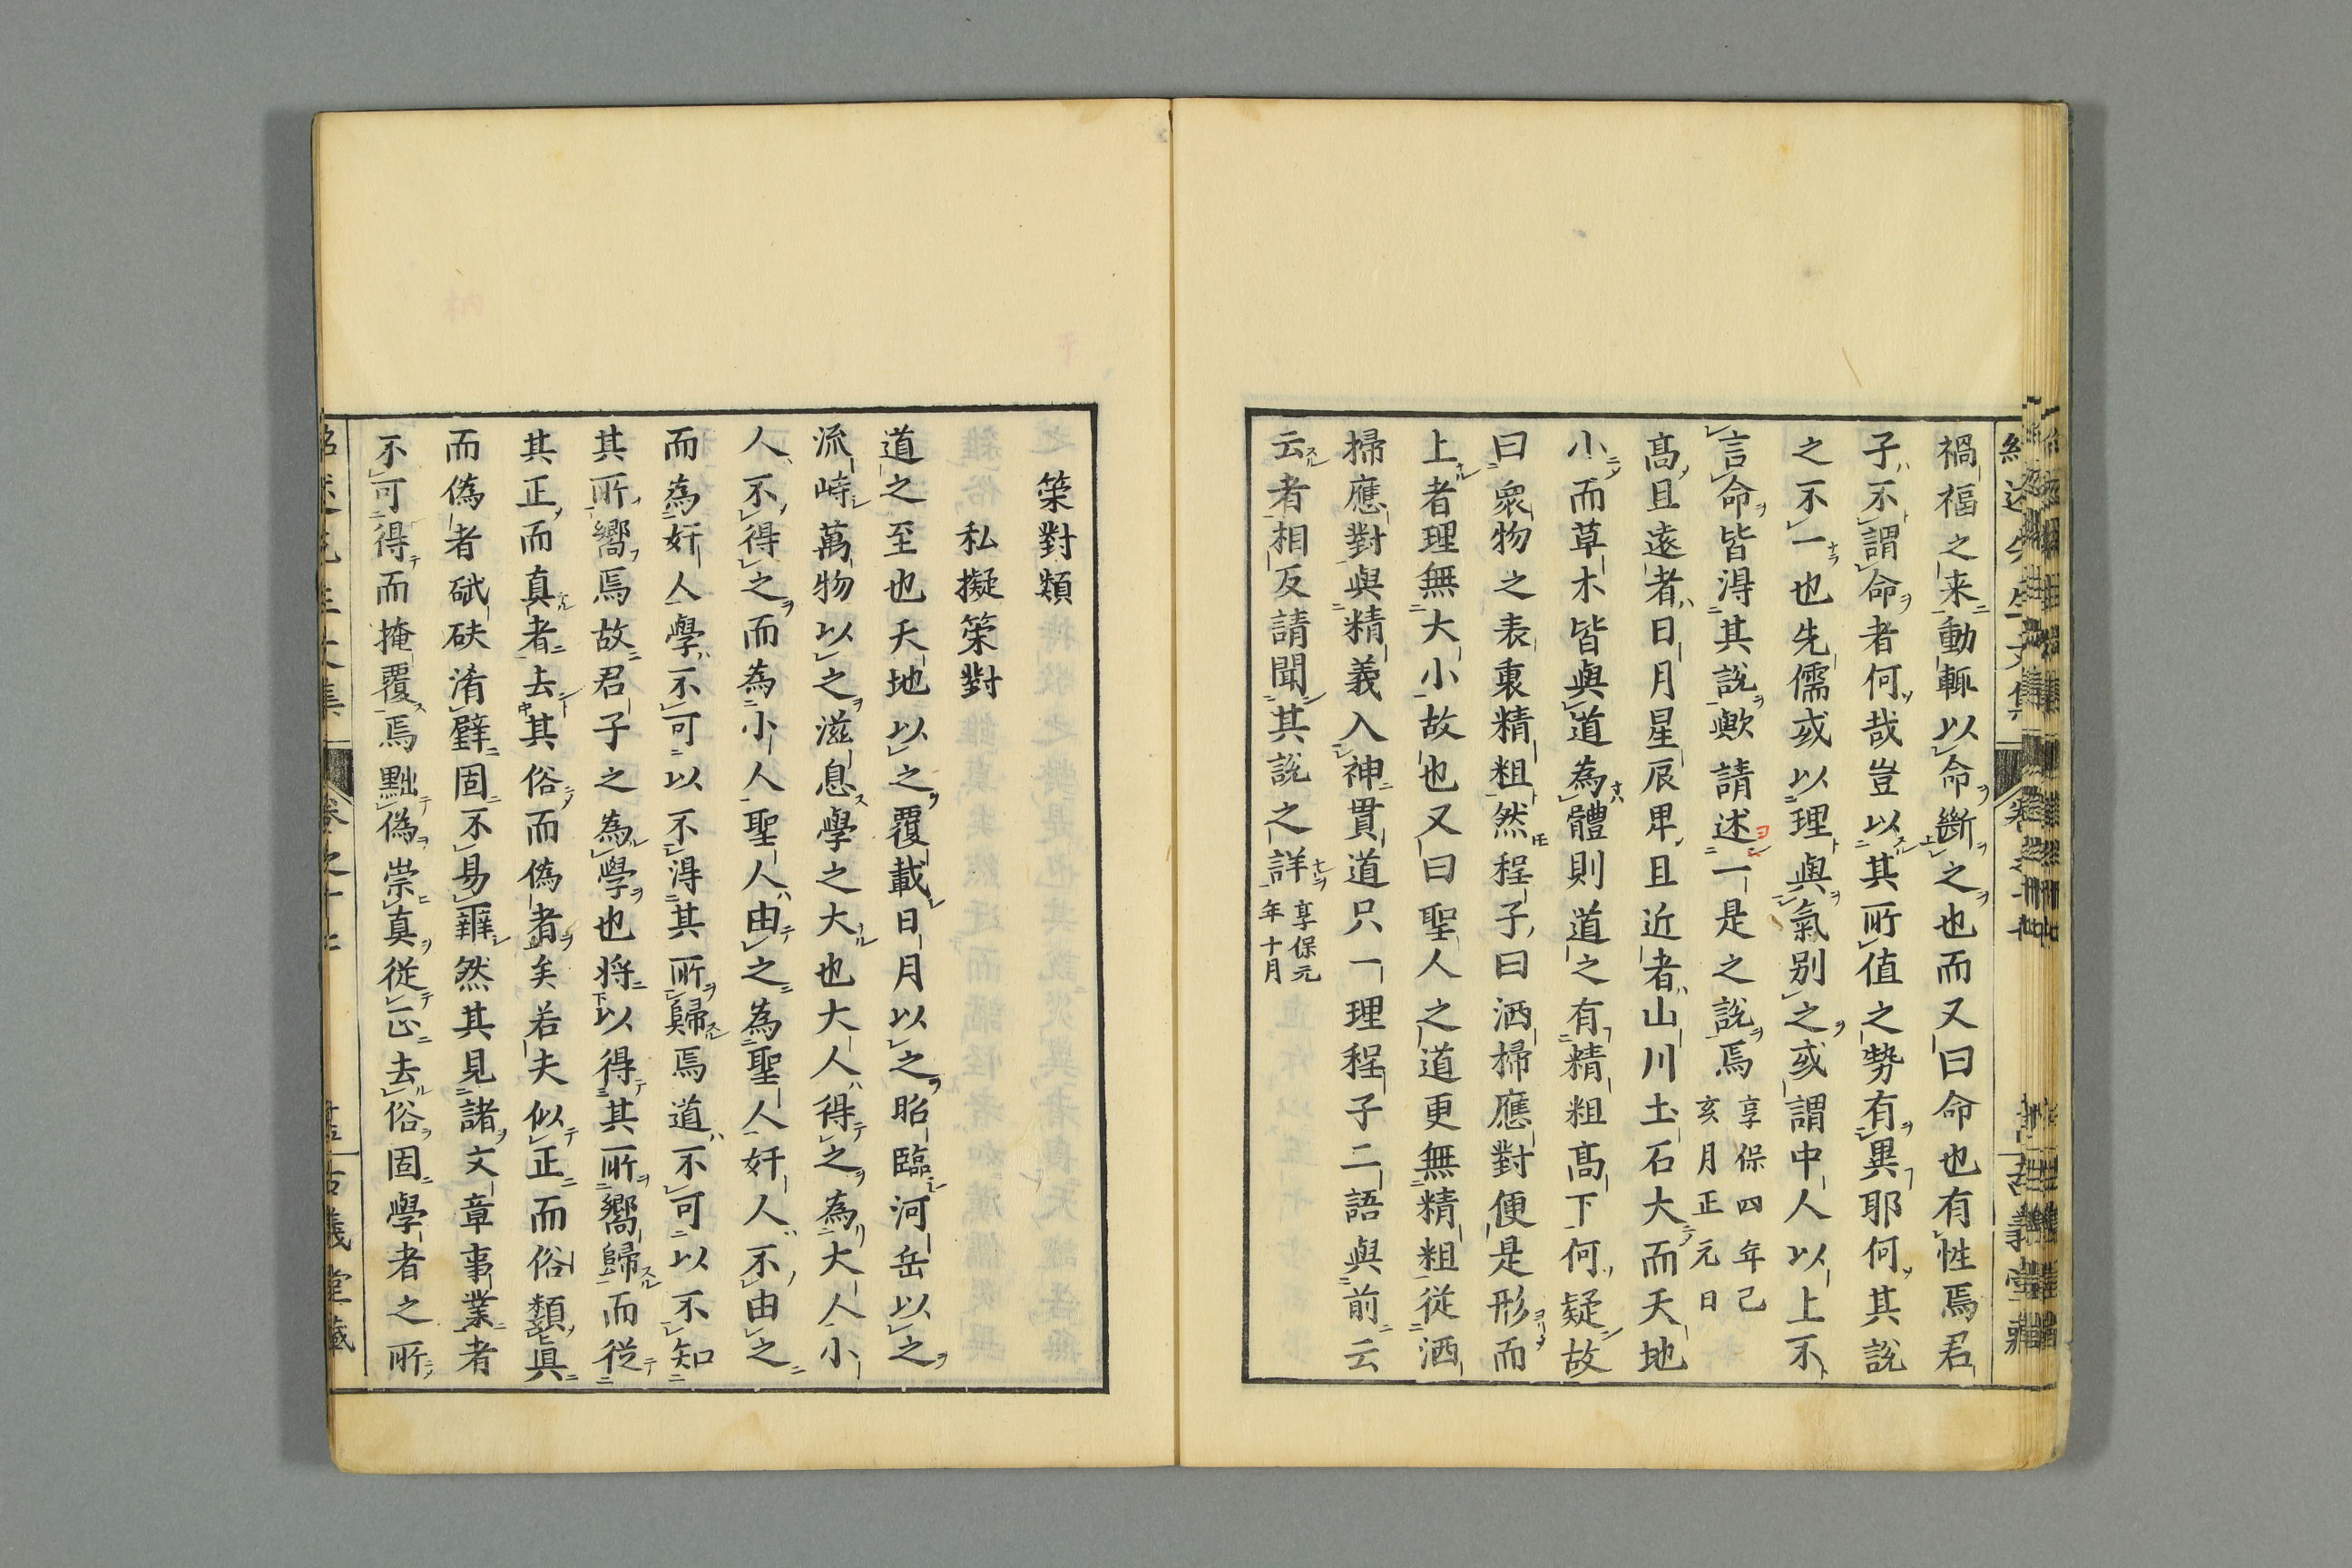 禍福之来動輒以命斷之也而又曰命也有性焉君
子不謂命者何哉豈以其所値之勢有異耶何其說
之不一也先儒或以理與氣別之或謂中人以上不
言命皆得其說歟請述一是之說焉享保四年己
亥月正元日
高且遠者日月星辰卑且近者山川土石大而天地
小而草木皆與道為體則道之有精粗高下何疑故
曰衆物之表裏精粗然程子曰洒掃應對便是形而
上者理無大小故也又曰聖人之道更無精粗從洒
掃應對與精義入神貫道只一理程子二語與前云
云者相反請聞其說之詳享保元
年十月
策對類
私擬策對
道之至也天地以之覆載日月以之昭臨河岳以之
流峙萬物以之滋息學之大也大人得之為大人小
人不得之而為小人聖人由之為聖人奸人不由之
而為奸人學不可以不得其所歸焉道不可以不知
其所嚮焉故君子之為學也将以得其所嚮歸而從
其正而真者去其俗而偽者矣若夫似正而俗類眞
而偽者砥砆淆璧固不易辨然其見諸文章事業者
不可得而掩覆焉黜偽崇真從正去俗固學者之所
紹述先生文集 卷之十七 古義堂藏